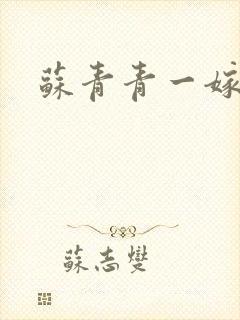 蘇青青一嫁
蘇志燮